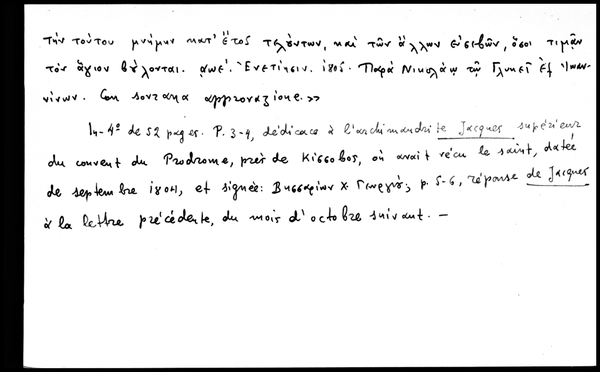 τὴν τούτου μνήμην κατ' ἔτος τελούντων, καὶ τῶν ἄλλων εὐσεβῶν, ὅσοι τιμᾷν
τὸν ἅγιον βούλονται. αωε'. Ἐνετίησιν. 1805. Παρὰ Νικολάῳ τῷ Γλυκεῖ ἐξ Ἰωαν-
νίνων. Con sovrana approvazione.»
In-4º de 52 pages. P. 3-4, dédicace à l'archimandrite Jacques supérieur
du couvent du Prodrome, près de Κίσσοβος, où avait vécu le saint, datée
de septembre 1804, et signée: Βησσαρίων Χ. Γεωργίου; p. 5-6, réponse de Jacques
à la lettre précédente, du mois d'octobre suivant. —